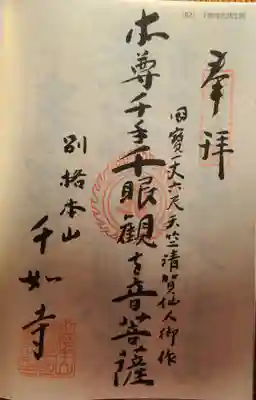 奉拝
国寶一丈六尺天竺清賀仙人御作
本尊千手千眼観音菩薩
別格本山
千如寺